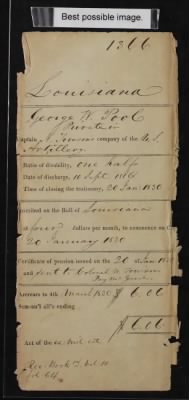 Best possible image.
1366
Louisiana
George W. Pool
Private in
Captain company of the U.S.
Artillery
Ratio of disability, one half
Date of discharge, 11 Sept.
Time of closing the testimony, 20 Jan. 1830
Inscribed on the Roll of Louisiana
at four dollars per month, to commence on the
20 January 1830
Certificate of pension issued on the 20 Jan 1830
and sent to Colonel N. Towson
Arrears to 4th March 1830 $ 6.06
Sem-an'l all'e ending
$ 6.06
Act of the